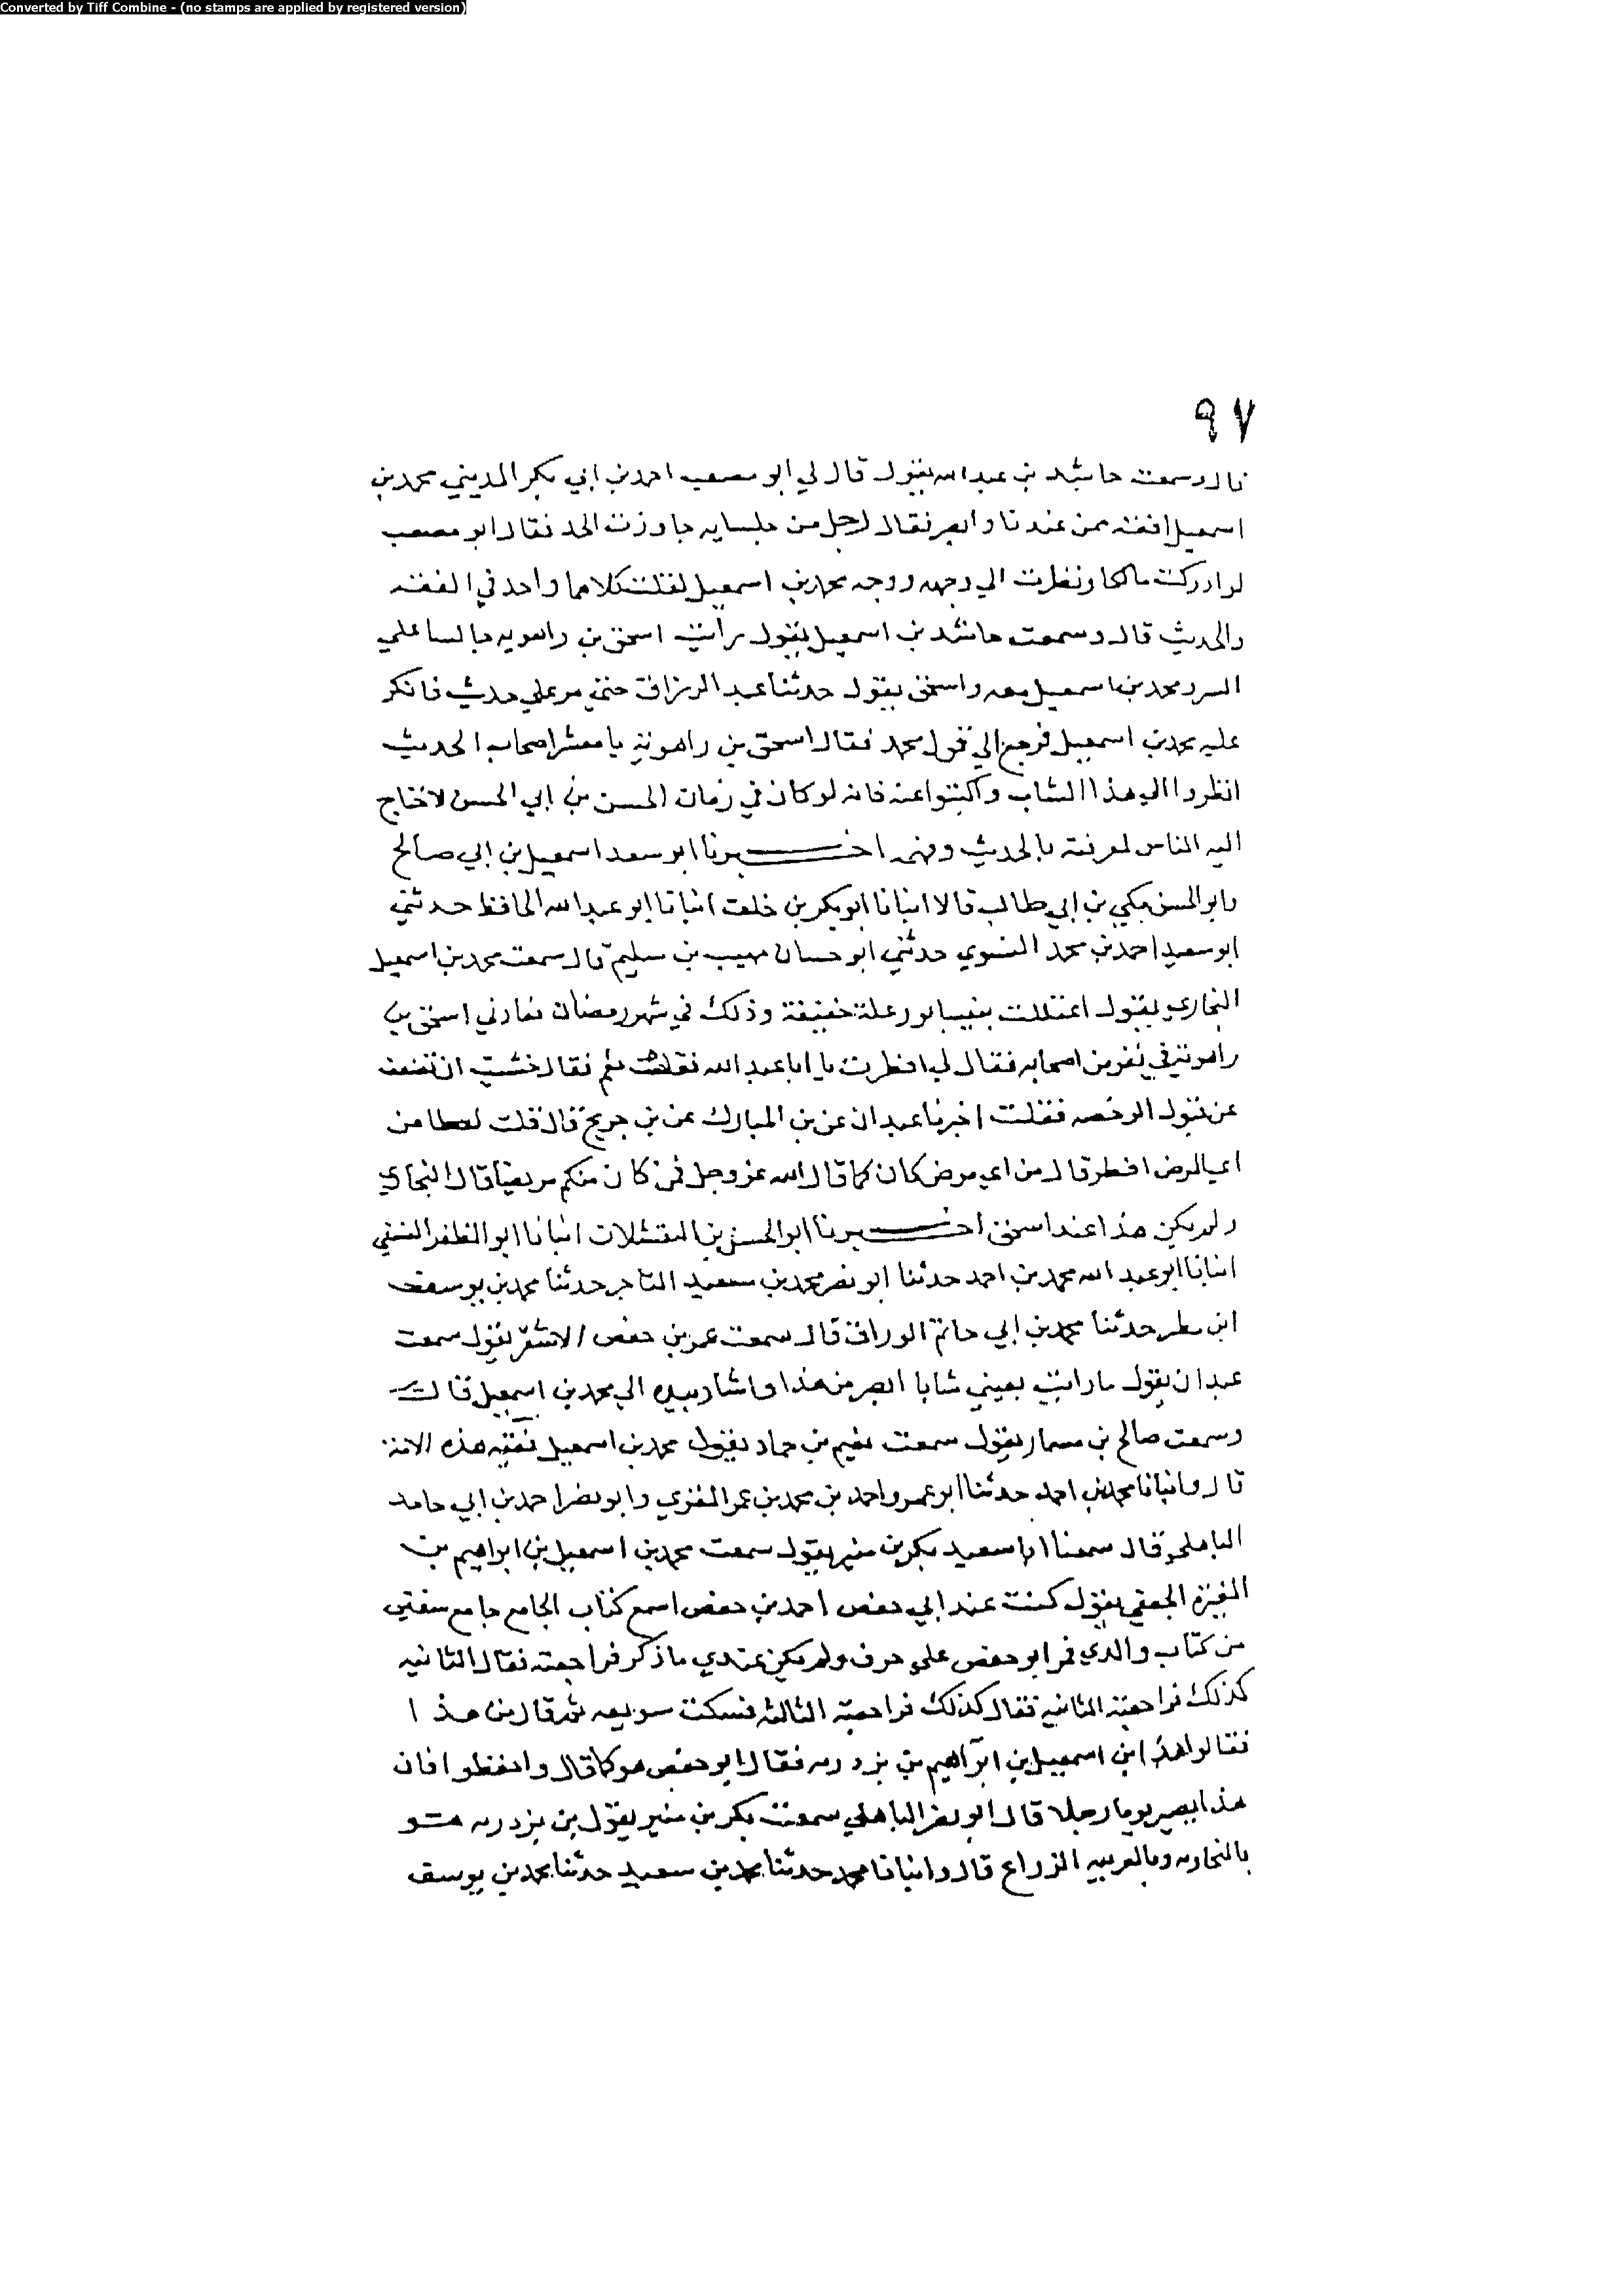 Converted by Tiff Combine - (no stamps are applied by registered version)
٩٧
قال وسمعت حاشد بن عبد الله يقول قال لي ابو مصعب احمد بن ابي بكر المديني محمد بن
اسمعيل افقه عندنا وابصر فقال رجل من جلسايه جاوزت الحد فقال ابو مصعب
لو ادركت مالكا ونظرت الي وجهه ووجه محمد بن اسمعيل لقلت كلاهما واحد في الفقه
والحديث قال وسمعت حاشد بن اسمعيل يقول رأيت اسحق بن راهويه جالسا علي
السرير ومحمد بن اسمعيل معه واسحق يقول حدثنا عبد الرزاق حتي مر علي حديث فانكر
عليه محمد بن اسمعيل فرجع الي قول محمد فقال اسحق بن راهويه يا معشر اصحاب الحديث
انظروا الي هذا الشاب واكتبوا عنه فانه لو كان في زمان الحسن بن ابي الحسن لاحتاج
اليه الناس لمعرفته بالحديث وفهمه اخبرنا ابو سعد اسمعيل بن ابي صالح
وابو الحسن مكي بن ابي طالب قالا انبانا ابو بكر بن خلف انبانا ابو عبد الله الحافظ حدثني
ابو سعيد احمد بن محمد النسوي حدثني ابو حسان مهيب بن سليم قال سمعت محمد بن اسمعيل
البخاري يقول اعتللت بنيسابور علة خفيفة وذلك في شهر رمضان فعادني اسحق بن
راهويه في نفر من اصحابه فقال لي افطرت يا ابا عبد الله فقلت نعم فقال خشيت ان تضعف
عن قبول الرخصه فقلت اخبرنا عبدان عن بن المبارك عن بن جريج قال قلت لعطا من
اي المرض افطر قال من اي مرض كان كما قال الله عز وجل فمن كان منكم مريضا قال البخاري
ولم يكن هذا عند اسحق اخبرنا ابو الحسن بن انبانا ابو المظفر النسفي
انبانا ابو عبد الله محمد بن احمد حدثنا ابو نصر محمد بن سعيد التاجر حدثنا محمد بن يوسف
ابن مطر حدثنا محمد بن ابي حاتم الوراق قال سمعت عمر بن حفص الاشقر يقول سمعت
عبدان يقول ما رايت بعيني شابا ابصر من هذا واشار بيده الي محمد بن اسمعيل قال
وسمعت صالح بن مسمار يقول سمعت نعيم بن حماد يقول محمد بن اسمعيل فقيه هذه الامة
قال وانبانا محمد بن احمد حدثنا ابو عمرو احمد بن محمد بن عمر المقري وابو نصر احمد بن ابي حامد
الباهلي قال سمعنا ابا سعيد بكر بن منير يقول سمعت محمد بن اسمعيل بن ابراهيم بن
المغيرة الجعفي يقول كنت عند ابي حفص احمد بن حفص اسمع كتاب الجامع جامع سفين
من كتاب والدي فمر ابو حفص علي حرف ولم يكن عندي ما ذكر فراجعته فقال الثانيه
كذلك فراجعته الثانيه فقال كذلك فراجعته الثالثه فسكت سويعه ثم قال من هذا
فقالوا هذا ابن اسمعيل بن ابراهيم بن بردزبه فقال ابو حفص هو كما قال واحفظوا فان
هذا يصير يوما رجلا قال ابو نصر الباهلي سمعت بكر بن منير يقول بن بردزبه هو
بالبخاريه وبالعربيه الزراع قال وانبانا محمد حدثنا محمد بن سعيد حدثنا محمد بن يوسف